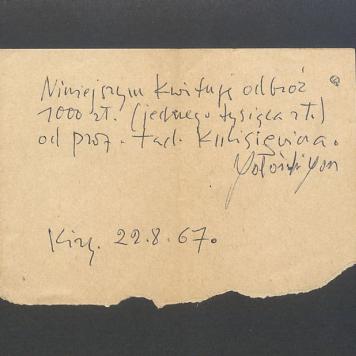 Niniejszym kwituję odbiór
1000 zł. (jednego tysiąca zł.)
od prof. Tad. Kulisiewicza.
22.8.67.